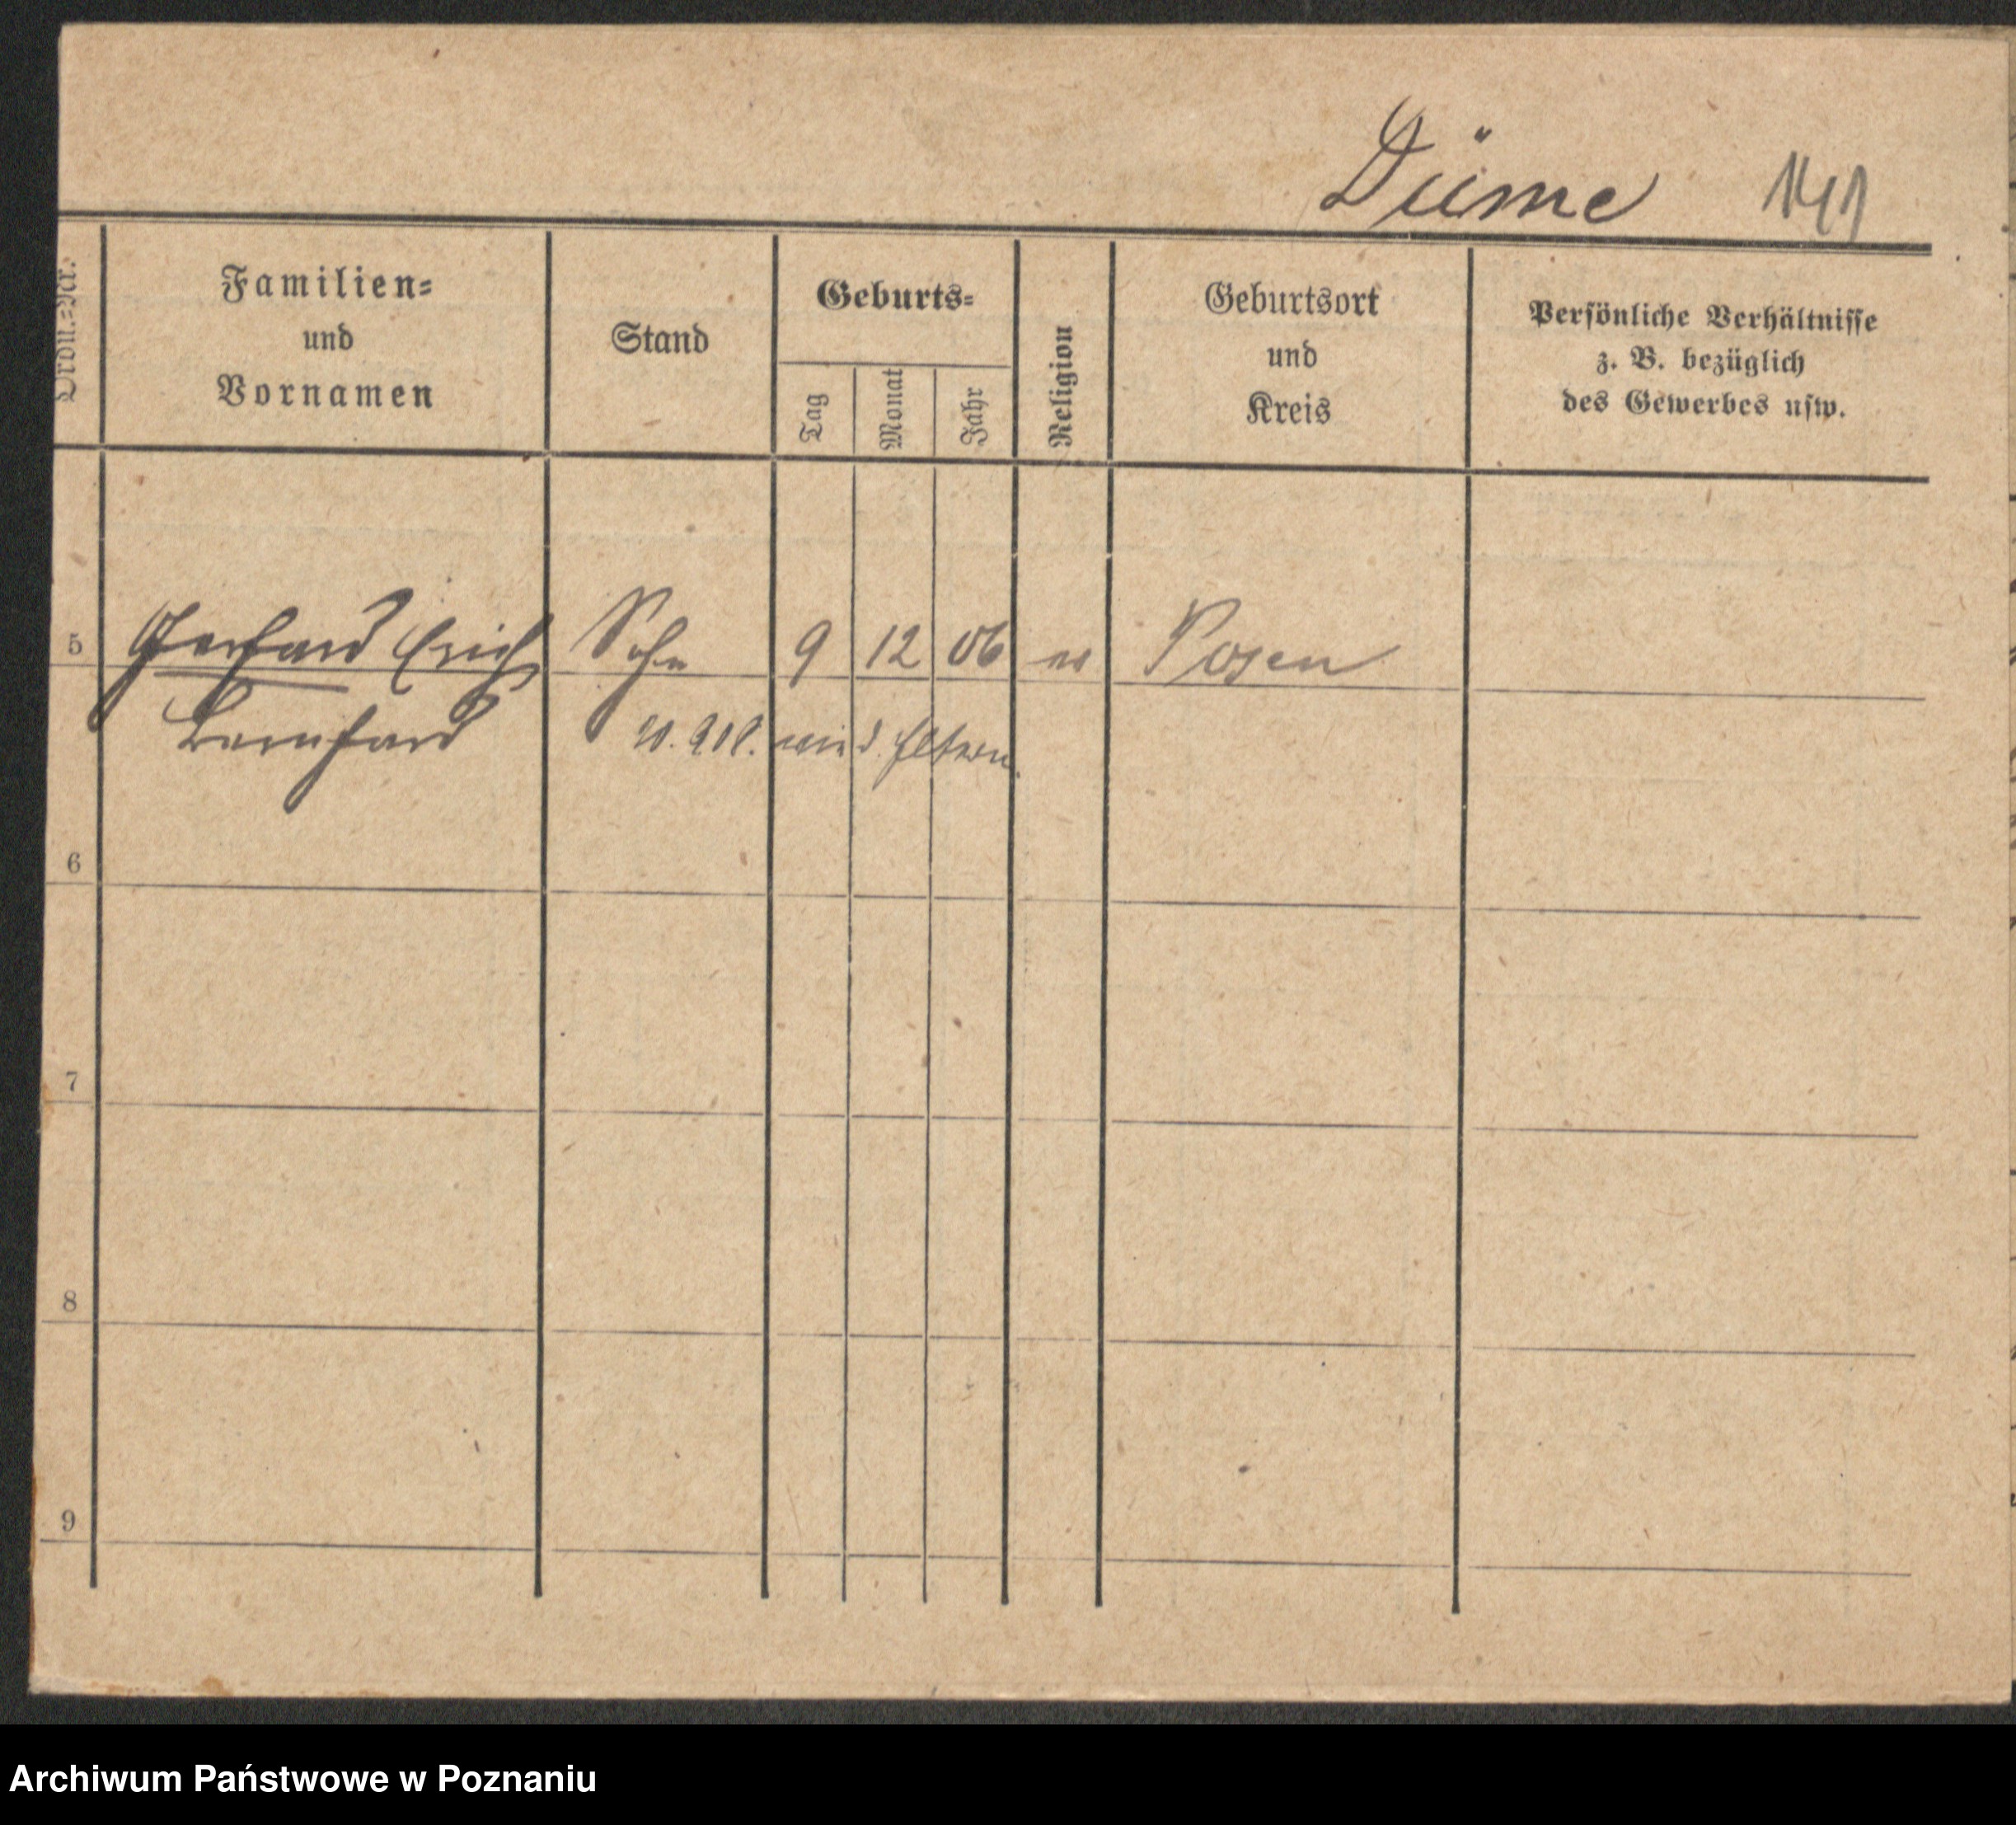 Düme 141
Ordn.=Nr.
Familien=
und
Vornamen
Stand
Geburts=
Tag
Monat
Jahr
Religion
Geburtsort
und
Kreis
Persönliche Verhältnisse
z. B. bezüglich
des Gewerbes usw.
5 Gerhard Erich Sohn 9 12 06 ev Posen
Bernhard wie d. Eltern
6
7
8
9
Archiwum Państwowe w Poznaniu